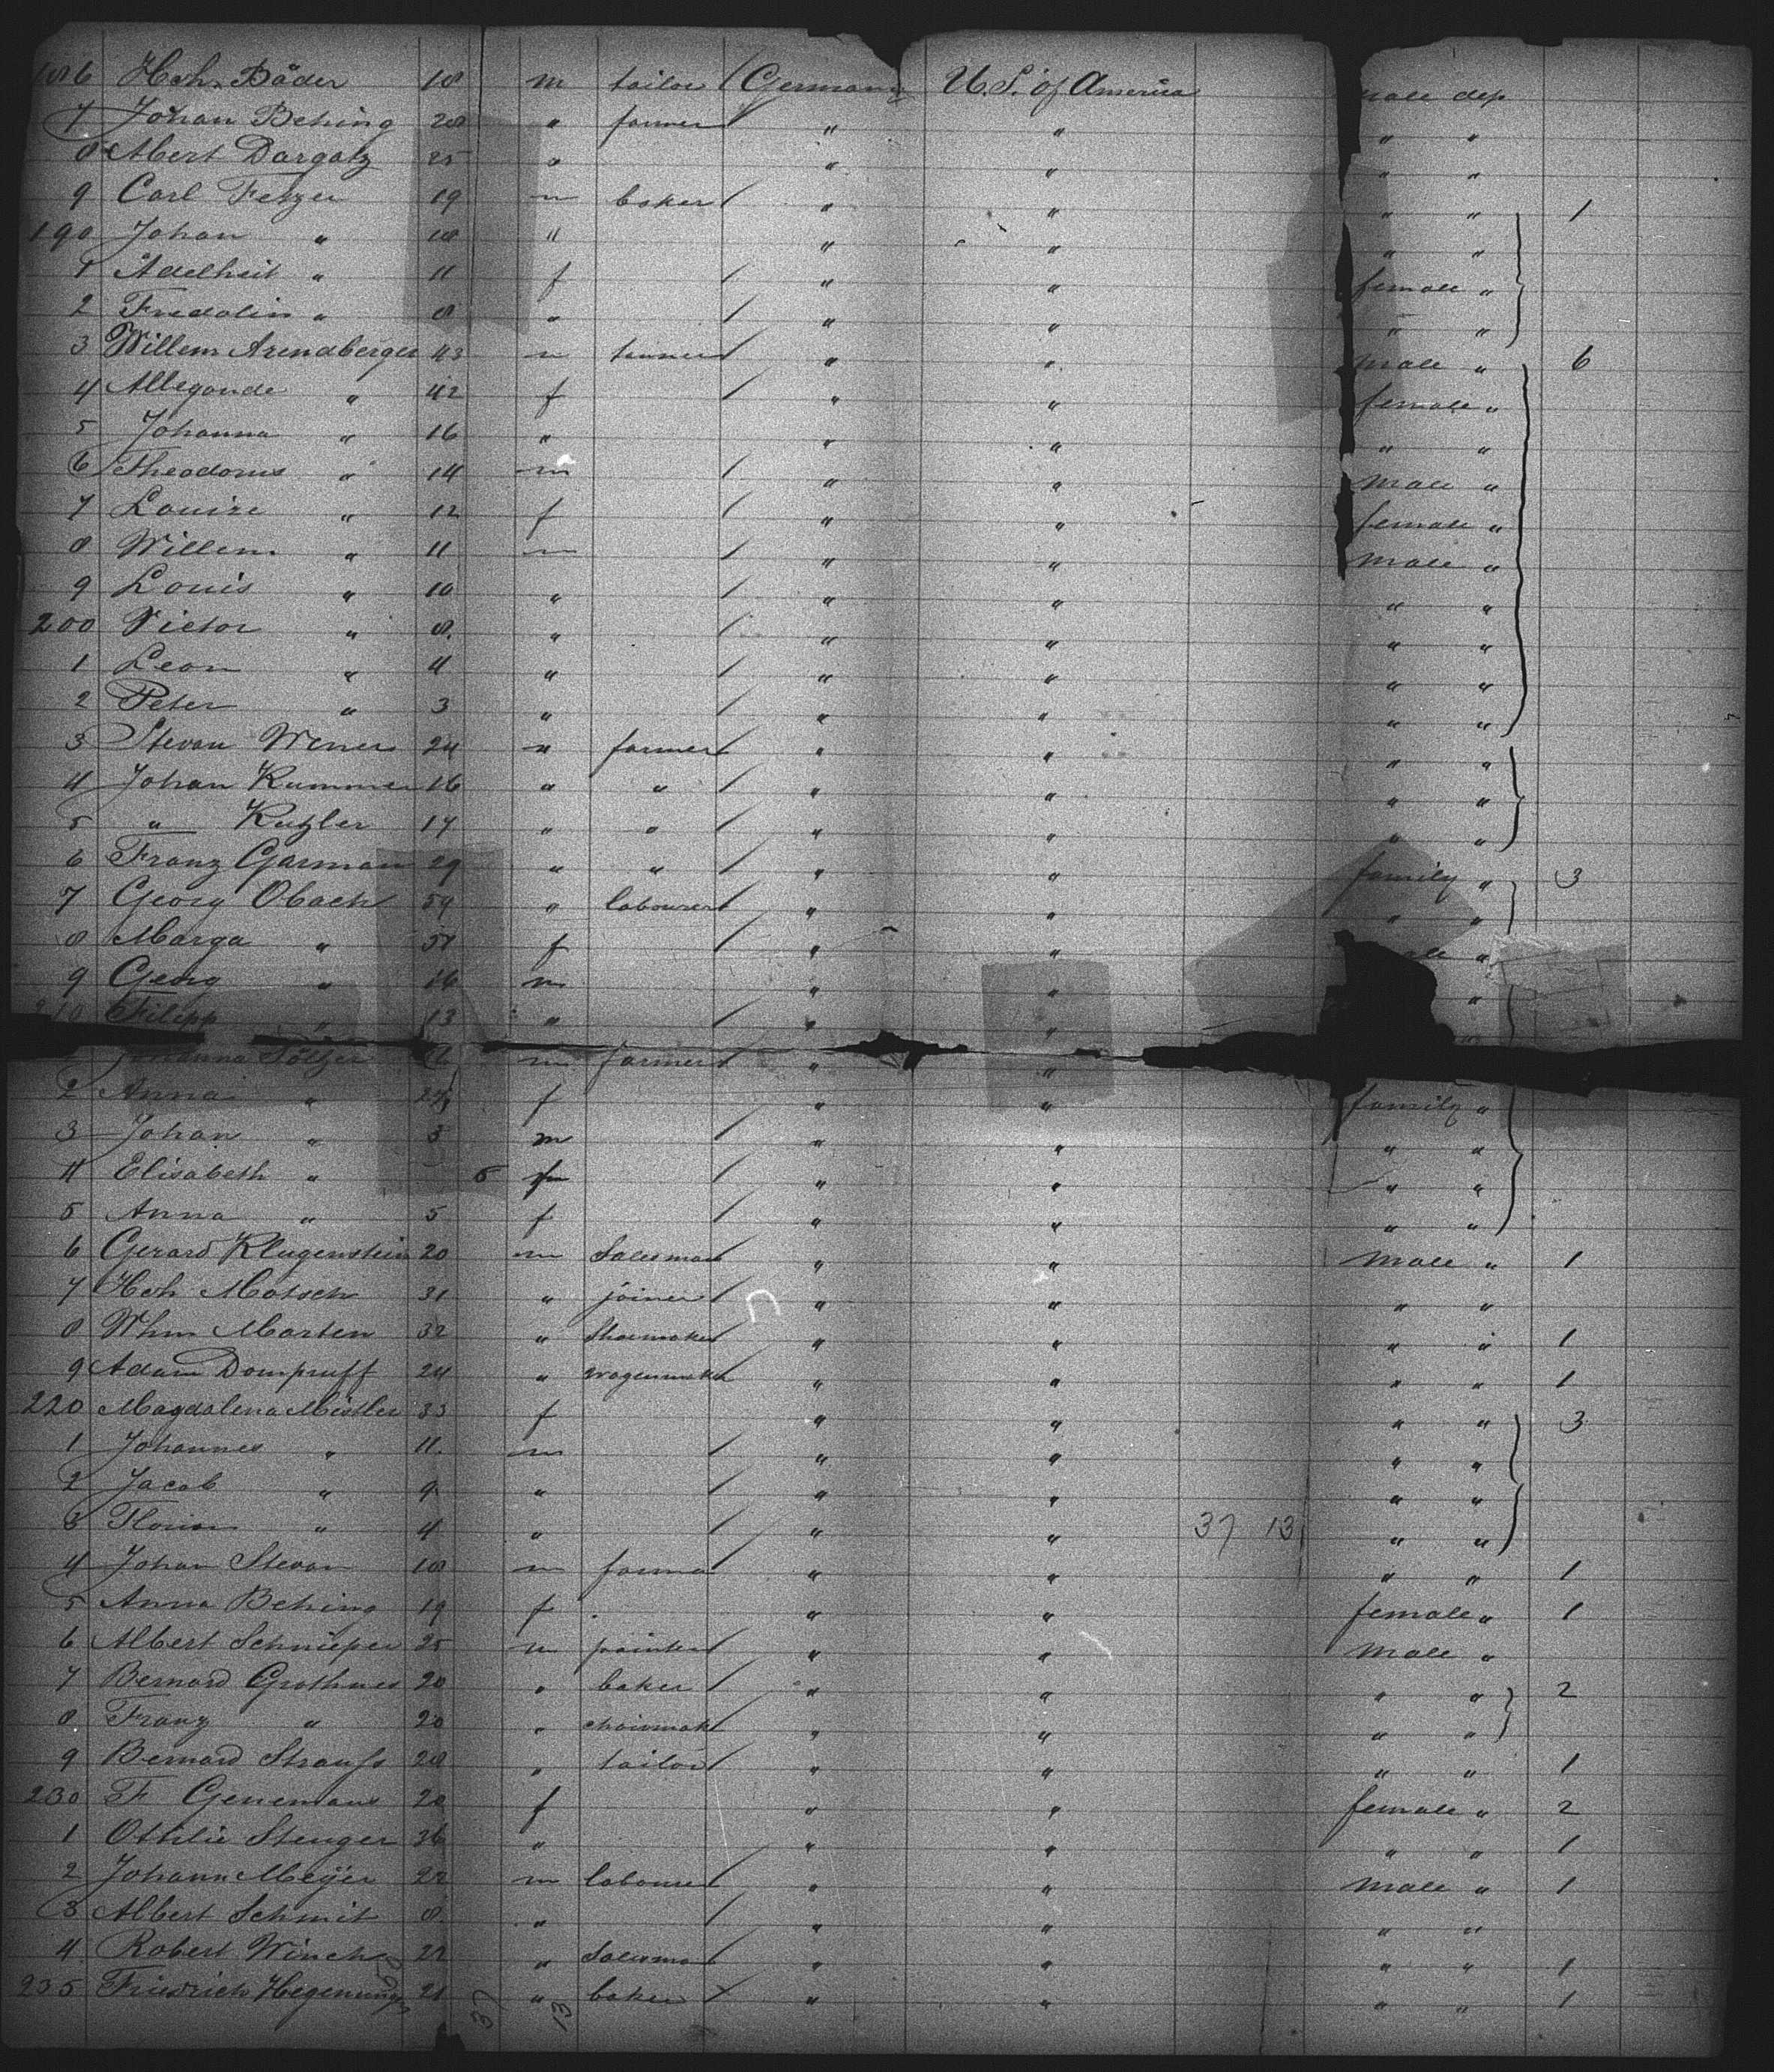 186 Hch. Bäder 18 m tailor Germany U.S. of America male dep
7 Johan Behing 28 " farmer " " " "
8 Albert Dargatz 25 " " " " "
9 Carl Fetzer 19 m baker " " " " 1
190 Johan " 18 " " " " "
1 Adelheit " 11 f " " female "
2 Fredolin " 8 " " " " "
3 Willem Arendberger 43 m tanner " " male " 6
4 Allegonde " 42 f " " female "
5 Johanna " 16 " " " " "
6 Theodorus " 14 m " " male "
7 Louise " 12 f " " female "
8 Willem " 11 m " " male "
9 Louis " 10 " " " " "
200 Victor " 8 " " " " "
1 Leon " 4 " " " " "
2 Peter " 3 " " " " "
3 Stevan Wener 24 " farmer " " " "
4 Johan Kummer 16 " " " " " "
5 " Kutzler 17 " " " " " "
6 Franz Garman 29 " " " " family " 3
7 Georg Obach 59 " labourer " " " "
8 Marga " 51 f " " "
9 Georg " 16 m " " "
210 Filipp " 13 " " "
Sölzer m farmer " "
2 Anna " f " " family "
3 Johan " 3 m " " " "
4 Elisabeth " 5 " " " "
5 Anna " 5 f " " " "
6 Gerard Klugenstein 20 m Salesman " " male " 1
7 Hch Motsch 31 " joiner " " " "
8 Whm Marten 32 " Shoemaker " " " " 1
9 Adam Dompruff 24 " wagenmaker " " " " 1
220 Magdalena Mistler 33 f " " " " 3
1 Johannes " 11 m " " " "
2 Jacob " 9 " " " " "
3 Florian " 4 " " " 37 13 " "
4 Johan Stevan 18 m farmer " " " " 1
5 Anna Behing 19 f " " female " 1
6 Albert Schnieper 25 m painter " " male "
7 Bernard Grothues 20 " baker " " " " 2
8 Franz " 20 " chairmak " " " "
9 Bernard Strauss 28 " tailor " " " " 1
230 F Genemans 20 f " " female " 2
1 Othilie Stenger 36 " " " " " 1
2 Johann Meÿer 22 m labourer " " male " 1
3 Albert Schmit 8 " " " " "
4 Robert Winch 22 " Salesman " " " " 1
235 Friedrich Hegenunger 21 " baker " " " " 1
37 13